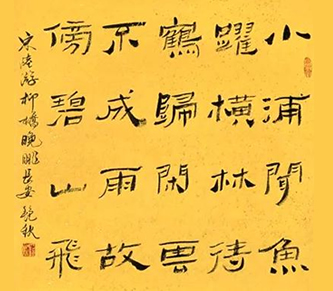 小浦聞魚
躍橫林待
鶴歸閑雲
不成雨故
傍碧山飛
宋陸游柳橋晚眺長安